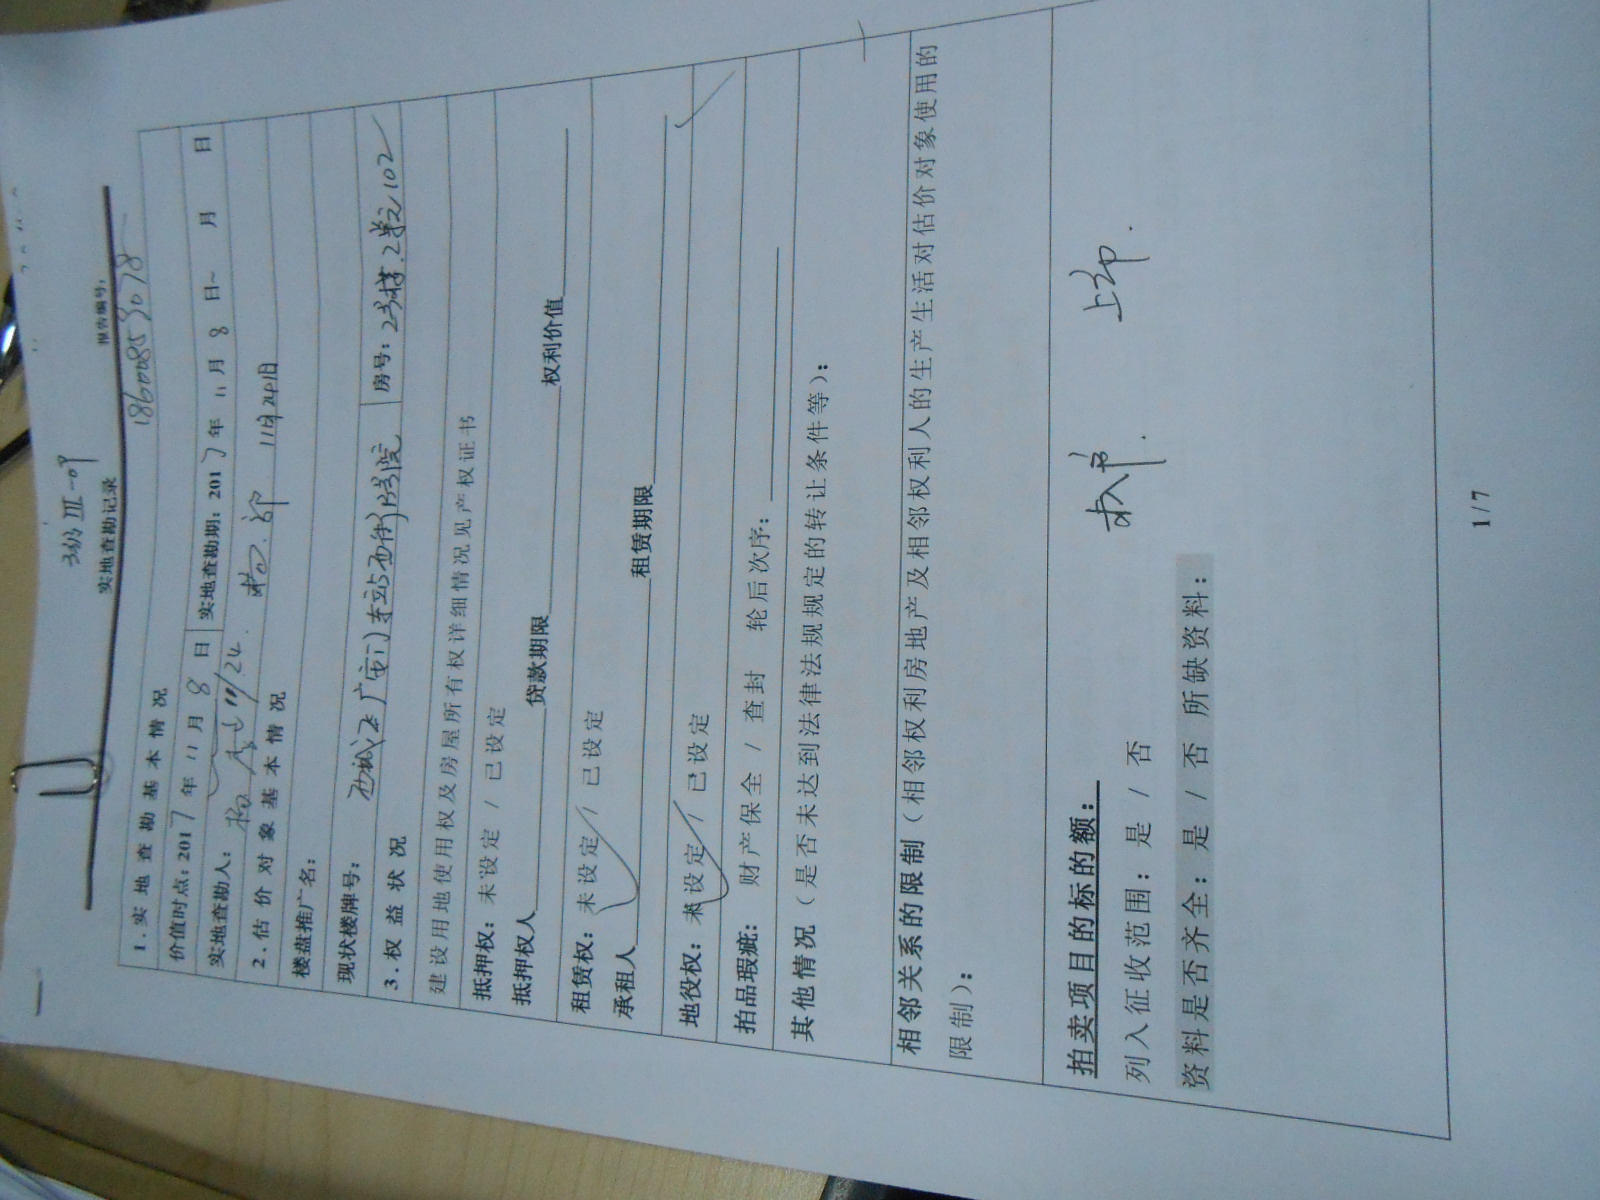 实地查勘记录
报告编号:
1.实地查勘基本情况
价值时点:2017年11月8日 实地查勘期:2017年11月8日~ 月 日
实地查勘人: 11/24. 11月24日
2.估价对象基本情况
楼盘推广名:
现状楼牌号: 西城区广安门车站西街 院 房号: 2号楼2单元102
3.权益状况
建设用地使用权及房屋所有权详细情况见产权证书
抵押权: 未设定 / 已设定
抵押权人 贷款期限 权利价值
租赁权: 未设定 / 已设定
承租人 租赁期限
地役权: 未设定 / 已设定
拍品瑕疵: 财产保全 / 查封 轮后次序:
其他情况(是否未达到法律法规规定的转让条件等):
相邻关系的限制(相邻权利房地产及相邻权利人的生产生活对估价对象使用的
限制):
拍卖项目的标的额:
列入征收范围: 是 / 否
资料是否齐全: 是 / 否 所缺资料:
1/7